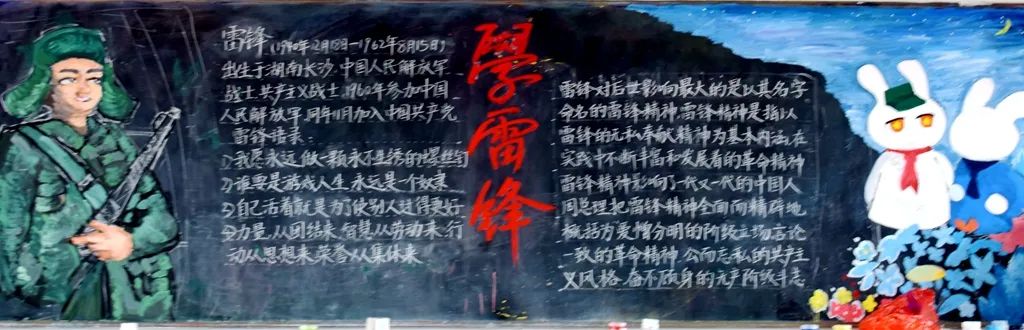 雷锋(1940年12月18日—1962年8月15日)
出生于湖南长沙.中国人民解放军
战士.共产主义战士.1960年参加中国
人民解放军.同年11月加入中国共产党
雷锋语录:
①我愿永远做一颗永不生锈的螺丝钉
②谁要是游戏人生.永远是一个奴隶
③自己活着就是为了使别人过得更好
④力量从团结来.智慧从劳动来.行
动从思想来.荣誉从集体来
學雷锋
雷锋对后世影响最大的是以其名字
命名的雷锋精神.雷锋精神是指以
雷锋的无私奉献精神为基本内涵.在
实践中不断丰富和发展着的革命精神
雷锋精神影响了一代又一代的中国人
周总理把雷锋精神全面而精辟地
概括为爱憎分明的阶级立场.言论
一致的革命精神.公而忘私的共产主
义风格.奋不顾身的无产阶级斗志